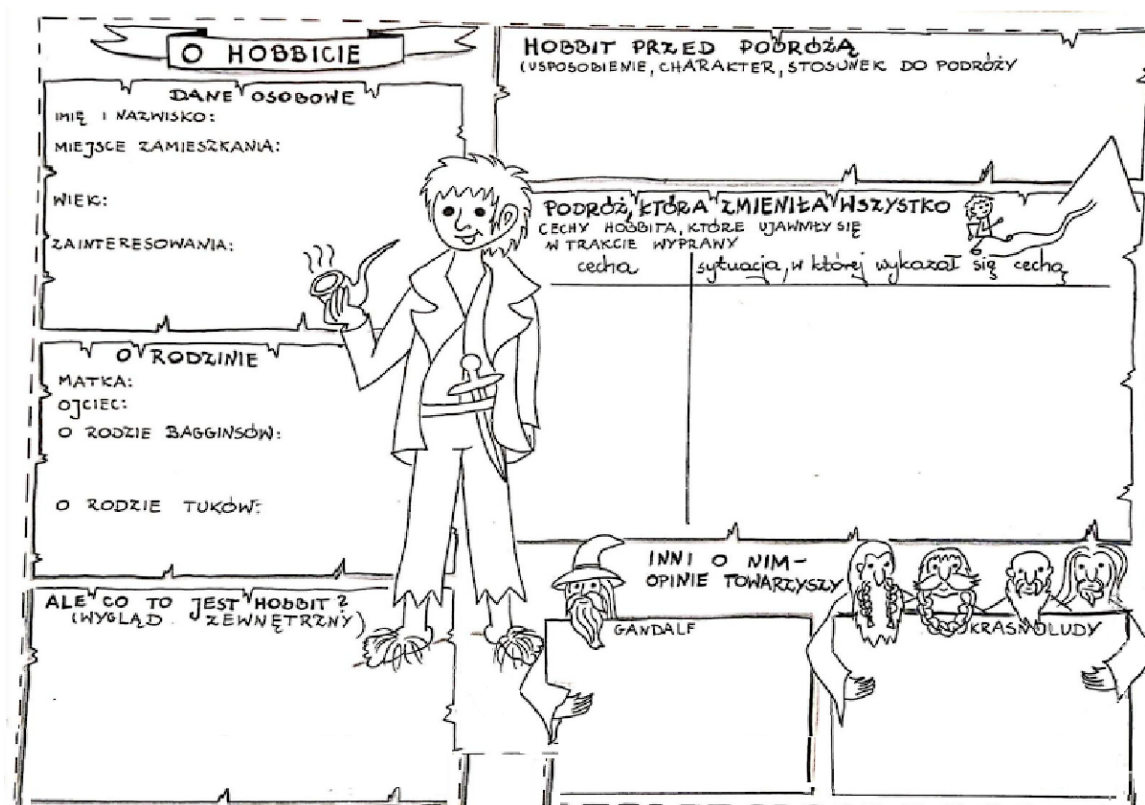 O HOBBICIE
DANE OSOBOWE
IMIĘ I NAZWISKO:
MIEJSCE ZAMIESZKANIA:
WIEK:
ZAINTERESOWANIA:
O RODZINIE
MATKA:
OJCIEC:
O RODZIE BAGGINSÓW:
O RODZIE TUKÓW:
ALE CO TO JEST HOBBIT?
(WYGLĄD ZEWNĘTRZNY)
HOBBIT PRZED PODRÓŻĄ
(USPOSOBIENIE, CHARAKTER, STOSUNEK DO PODRÓŻY
PODRÓŻ, KTÓRA ZMIENIŁA WSZYSTKO
CECHY HOBBITA, KTÓRE UJAWNIŁY SIĘ
W TRAKCIE WYPRAWY
cecha sytuacja, w której wykazał się cechą
INNI O NIM-
OPINIE TOWARZYSZY
GANDALF
KRASNOLUDY